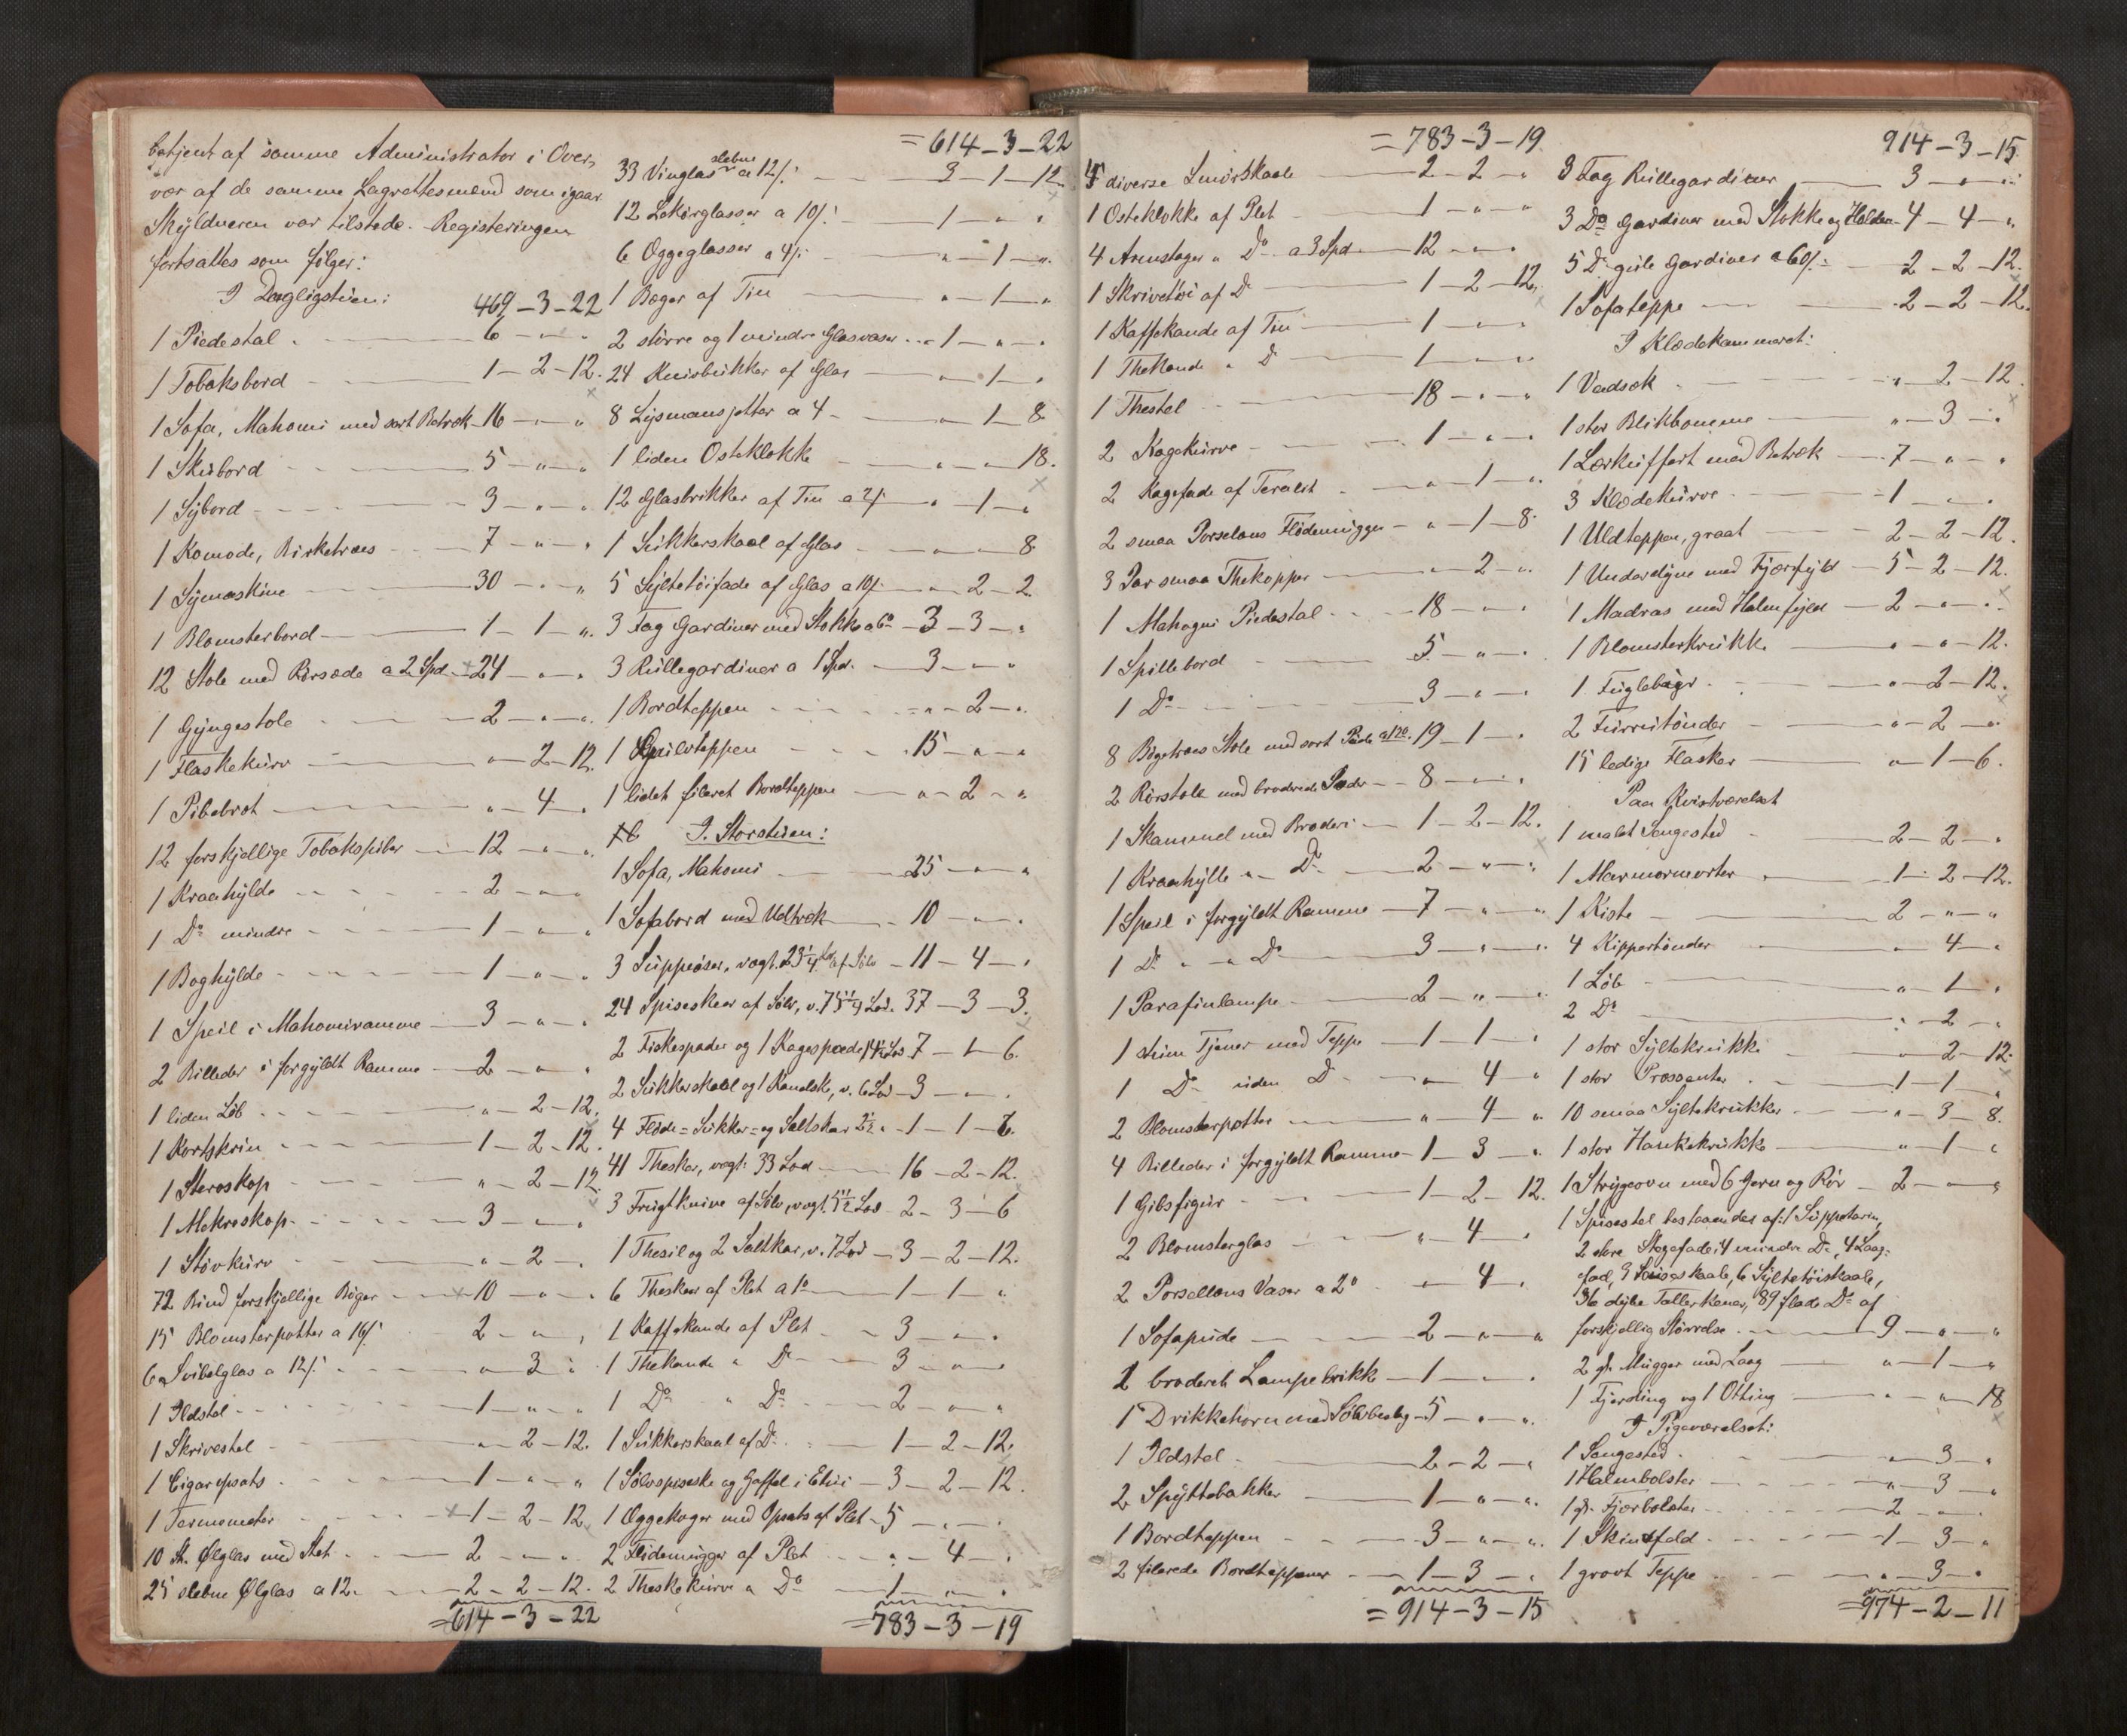 betjent af samme Administrator i Over-
vær af de samme Lagrettesmænd som igaar.
Skyldneren var tilstede. Registeringen
fortsattes som følger:
I Dagligstuen: 469 - 3 - 22
1 Piedestal 6 - " - "
1 Tobaksbord 1 - 2 - 12.
1 Sofa, Mahoni med sort Betræk 16 - " - "
1 Skibord 5 - " - "
1 Sybord 3 - " - "
1 Komode, Birketræs 7 - " - "
1 Symaskine 30 - " - "
1 Blomsterbord 1 - 1 - ".
12 Stole med Rørsæde a 2 Spd. 24 - " - "
1 Gyngestole 2 - " - "
1 Flaskekurv " - 2 - 12.
1 Pibebret " - 4 - "
12 forskjellige Tobakspiber 12 - " - "
1 Kraahylde 2 - " - "
1 Do mindre 1 - " - "
1 Boghylde 1 - " - "
1 Speil i Mahoniramme 3 - " - "
2 Billeder i forgyldt Ramme 2 - " - "
1 liden Løb " - 2 - 12.
1 Kortskrin 1 - 2 - 12.
1 Steroskop " - 2 - 12.
1 Mekroskop 3 - " - "
1 Støvkurv " - 2 - "
72 Bind forskjellige Bøger 10 - " - "
15 Blomsterpotter a 16/. 2 - " - "
6 Svibelglas a 12/. " - 3 - "
1 Ildstel 1 - " - "
1 Skrivestel " - 2 - 12.
1 Cigaropsats 1 - " - "
1 Termometer 1 - 2 - 12
10 St. Ølglas med Stet 2 - " - "
25 slebne Ølglas a 12. 2 - 2 - 12.
= 614 - 3 - 22
= 614 - 3 - 22
33 Vinglas slebne a 12/. 3 - 1 - 12
12 Lekørglasser a 10/. 1 - " - "
6 Eggeglasser a 4/. " - 1 - "
1 Bæger af Tin " - 1 - "
2 større og 1 mindre Glasvaser 1 - " - "
24 Knivbrikker af Glas " - 1 - "
8 Lysmansjetter a 4 - " - 1 - 8
1 liden Osteklokke " - " - 18.
12 Glasbrikker af Tin a 2/. " - 1 - "
1 Sukkerskaal af Glas " - " - 8
5 Syltetøifade af Glas a 10/. " - 2 - 2
3 Fag Gardiner med Stokke 3 - 3 - "
3 Rullegardiner a 1 Spd. 3 - " - "
1 Bordteppen " - 2 - "
1 Gulvteppen 15 - " - "
1 lidet fileret Bordteppen " - 2 - "
I Storstuen:
1 Sofa, Mahoni 25 - " - "
1 Sofabord med Udtræk 10 - " - "
3 Suppeøser, vægt. 23 1/4 Lod af Sølv 11 - 4 - "
24 Spiseskeer af Sølv, v. 75 1/4 Lod. 37 - 3 - 3.
2 Fiskespader og 1 Kagespade 14 1/2 Lod 7 - 1 - 6
2 Sukkerskeel og 1 Kanelske, v. 6 Lod 3 - " - "
4 Fløde = Sukker = og Saltskeer 2 1/2 " 1 - 1 - 6.
41 Theskeer, vægt: 33 Lod 16 - 2 - 12.
3 Frugtknive af Sølv, vægt. 5 1/2 Lod 2 - 3 - 6
1 Thesil og 2 Saltkar, v. 7 Lod 3 - 2 - 12.
6 Theskeer af Plet 1 - 1 - "
1 Kaffekande af Plet 3 - " - "
1 Thekande " Do 3 - " - "
1 Do " Do 2 - " - "
1 Sukkerskaal af Do 1 - 2 - 12.
1 Sølvspiseske og Gaffel i Etui 3 - 2 - 12.
1 Eggekoger med Opsats af Plet 5 - " - "
2 Flødemugger af Plet " - 4 - "
2 Theskekurve " Do 1 - " - "
= 783 - 3 - 19
= 783 - 3 - 19
5 diverse Smørskaale 2 - 2 - "
1 Osteklokke af Plet 1 - " - "
4 Armstager " Do a 3 Spd 12 - " - "
1 Skrivetøi af Do 1 - 2 - 12.
1 Kaffekande af Tin 1 - " - "
1 Thekande " Do 1 - " - "
1 Thestel 18 - " - "
2 Kagekurve 1 - " - "
2 Kagefade af Teralit " - 1 - "
2 smaa Porselæns Flødemugger " - 1 - 8
3 Par smaa Thekopper " - 2 - "
1 Mahogni Piedestal 18 - " - "
1 Spillebord 5 - " - "
1 Do 3 - " - "
8 Bøgetræs Stole med sort Pude a/120. 19 - 1 - "
2 Rørstole med broderede Puder 8 - " - "
1 Skammel med Broderi 1 - 2 - 12.
1 Kraahylle " Do 2 - " - "
1 Speil i forgyldt Ramme 7 - " - "
1 Do " " Do 3 - " - "
1 Parafinlampe 2 - " - "
1 stum Tjener med Teppe 1 - 1 - "
1 Do uden Do " - 4 - "
2 Blomsterpotter " - 4 - "
4 Billeder i forgyldt Ramme 1 - 3 - "
1 Gibsfigur 1 - 2 - 12.
2 Blomsterglas " - 4 - "
2 Porsellæns Vaser a 2 " - 4 - "
1 Sofapude 2 - " - "
2 broderet Lampebrikk 1 - " - "
1 Drikkehorn med Sølvbeslag 5 - " - "
1 Ildstel 2 - 2 - "
2 Spyttebakker 1 - " - "
1 Bordteppen 3 - " - "
2 filerede Bordteppener 1 - 3 - "
= 914 - 3 - 15
914 - 3 - 15
3 Fag Rullegardiner 3 - " - "
3 Do Gardiner med Stokke og Holder 4 - 4 - "
5 Do gule Gardiner a 60/. 2 - 2 - 12.
1 Sofateppe 2 - 2 - 12.
I Klædekammeret:
1 Vadsæk " - 2 - 12.
1 stor Blikbomme " - 3 - "
1 Lærkuffert med Betræk 7 - " - "
3 Klædekurve 1 - " - "
1 Uldteppen, graat 2 - 2 - 12.
1 Underdyne med Fjærfyld 5 - 2 - 12.
1 Madras med Halmfyld 2 - " - "
1 Blomsterkrukke " - " - 12.
1 Fuglebuur " - 2 - 12.
2 Furrutønder " - 2 - "
15 ledige Flasker " - 1 - 6.
Paa Kvistværelset
1 malet Sengested 2 - 2 - "
1 Marmormorter 1 - 2 - 12.
1 Kiste 2 - " - "
4 Kippertønder " - 4 - "
1 Løb " - 1 - "
2 Do " - 2 - "
1 stor Syltekrukke " - 2 - 12.
1 stor Prossenter 1 - 1 - "
10 smaa Syltekrukker " - 3 - 8.
1 stor Hankekrukke " - 1 - "
1 Strygeovn med 6 Jern og Rør 2 - " - "
1 Spisestel bestaaendes af: 1 Suppetarin,
2 store Stegefade, 4 mindre Do, 4 Laag-
fad, 3 Sauseskaale, 6 Syltetøiskaale,
36 dybe Tallerkener, 89 flade Do af
forskjellig Størrelse 9 - " - "
2 gl. Mugger med Laag " - 1 - "
1 Fjerding og 1 Otting " - " - 18
I Pigeværelset:
1 Sengested " - 3 - "
1 Halmbolster " - 3 - "
1 gl. Fjærbolster 2 - " - "
1 Skindfeld 1 - 3 - "
1 grovt Teppe " - 3 - "
= 974 - 2 - 11